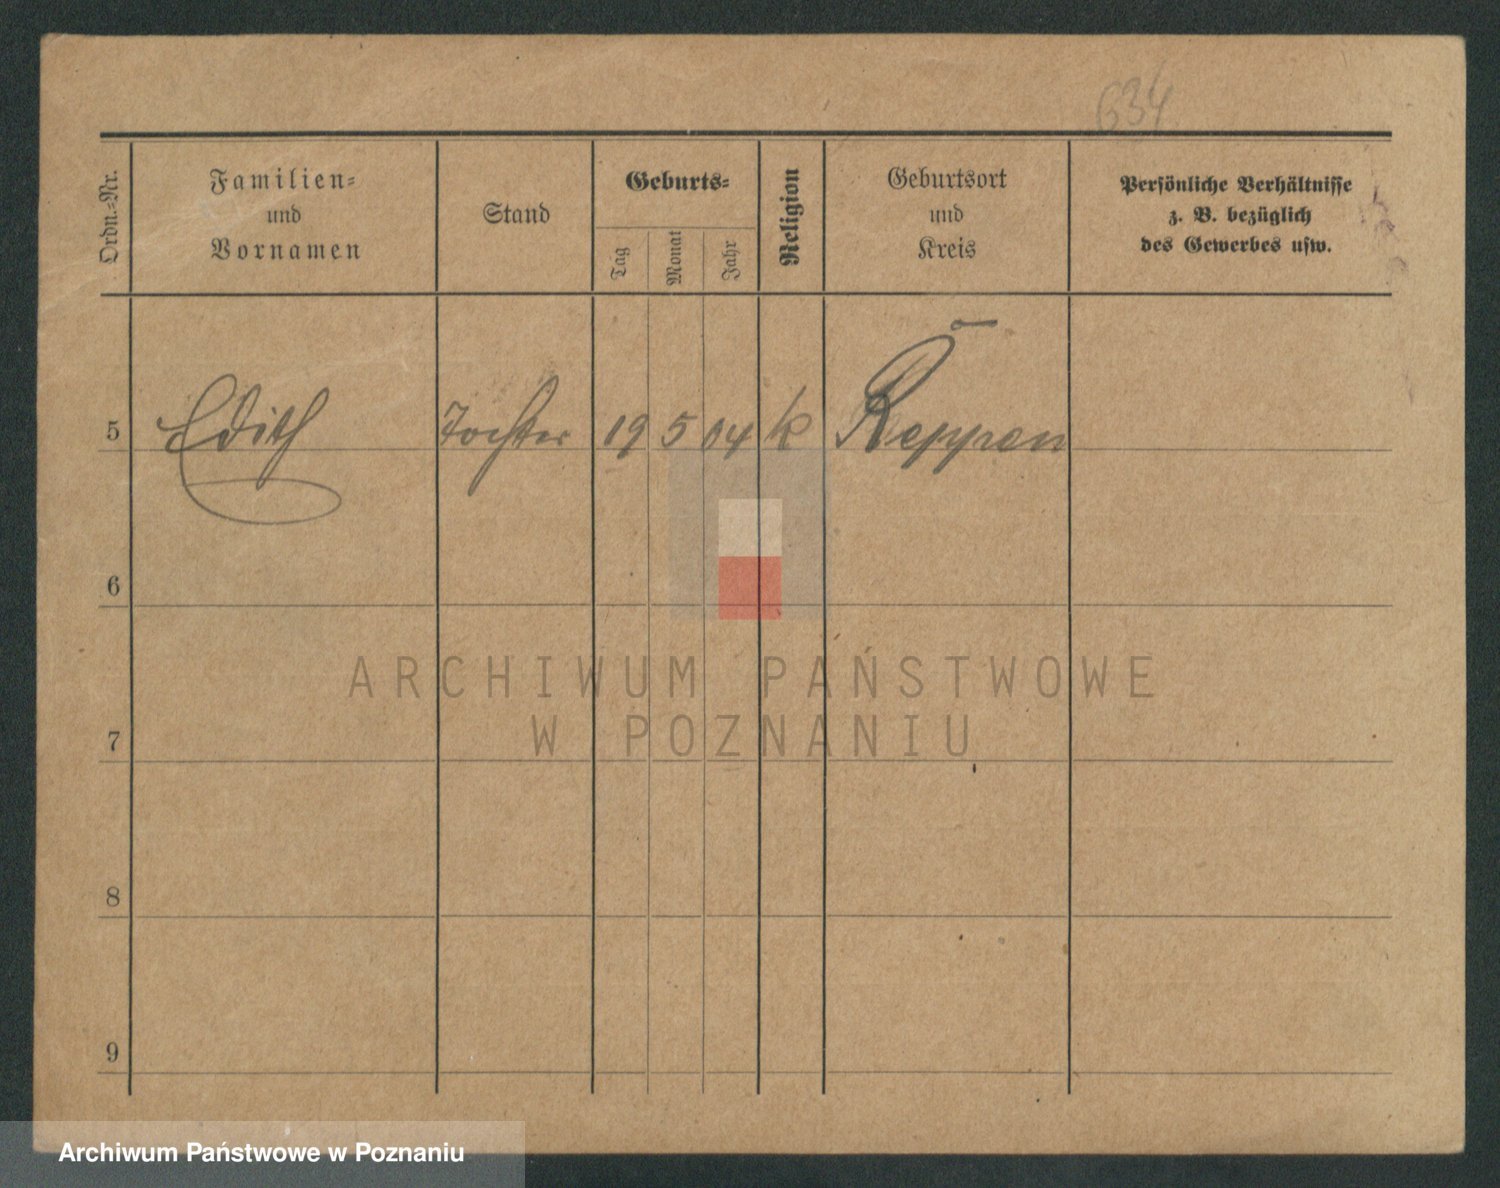 634
Ordn.-Nr.
Familien-
und
Vornamen
Stand
Geburts-
Tag
Monat
Jahr
Religion
Geburtsort
und
Kreis
Persönliche Verhältnisse
z. B. bezüglich
des Gewerbes usw.
5 Edith Tochter 19 5 04 k Reppen
6
7
8
9
ARCHIWUM PAŃSTWOWE
W POZNANIU
Archiwum Państwowe w Poznaniu